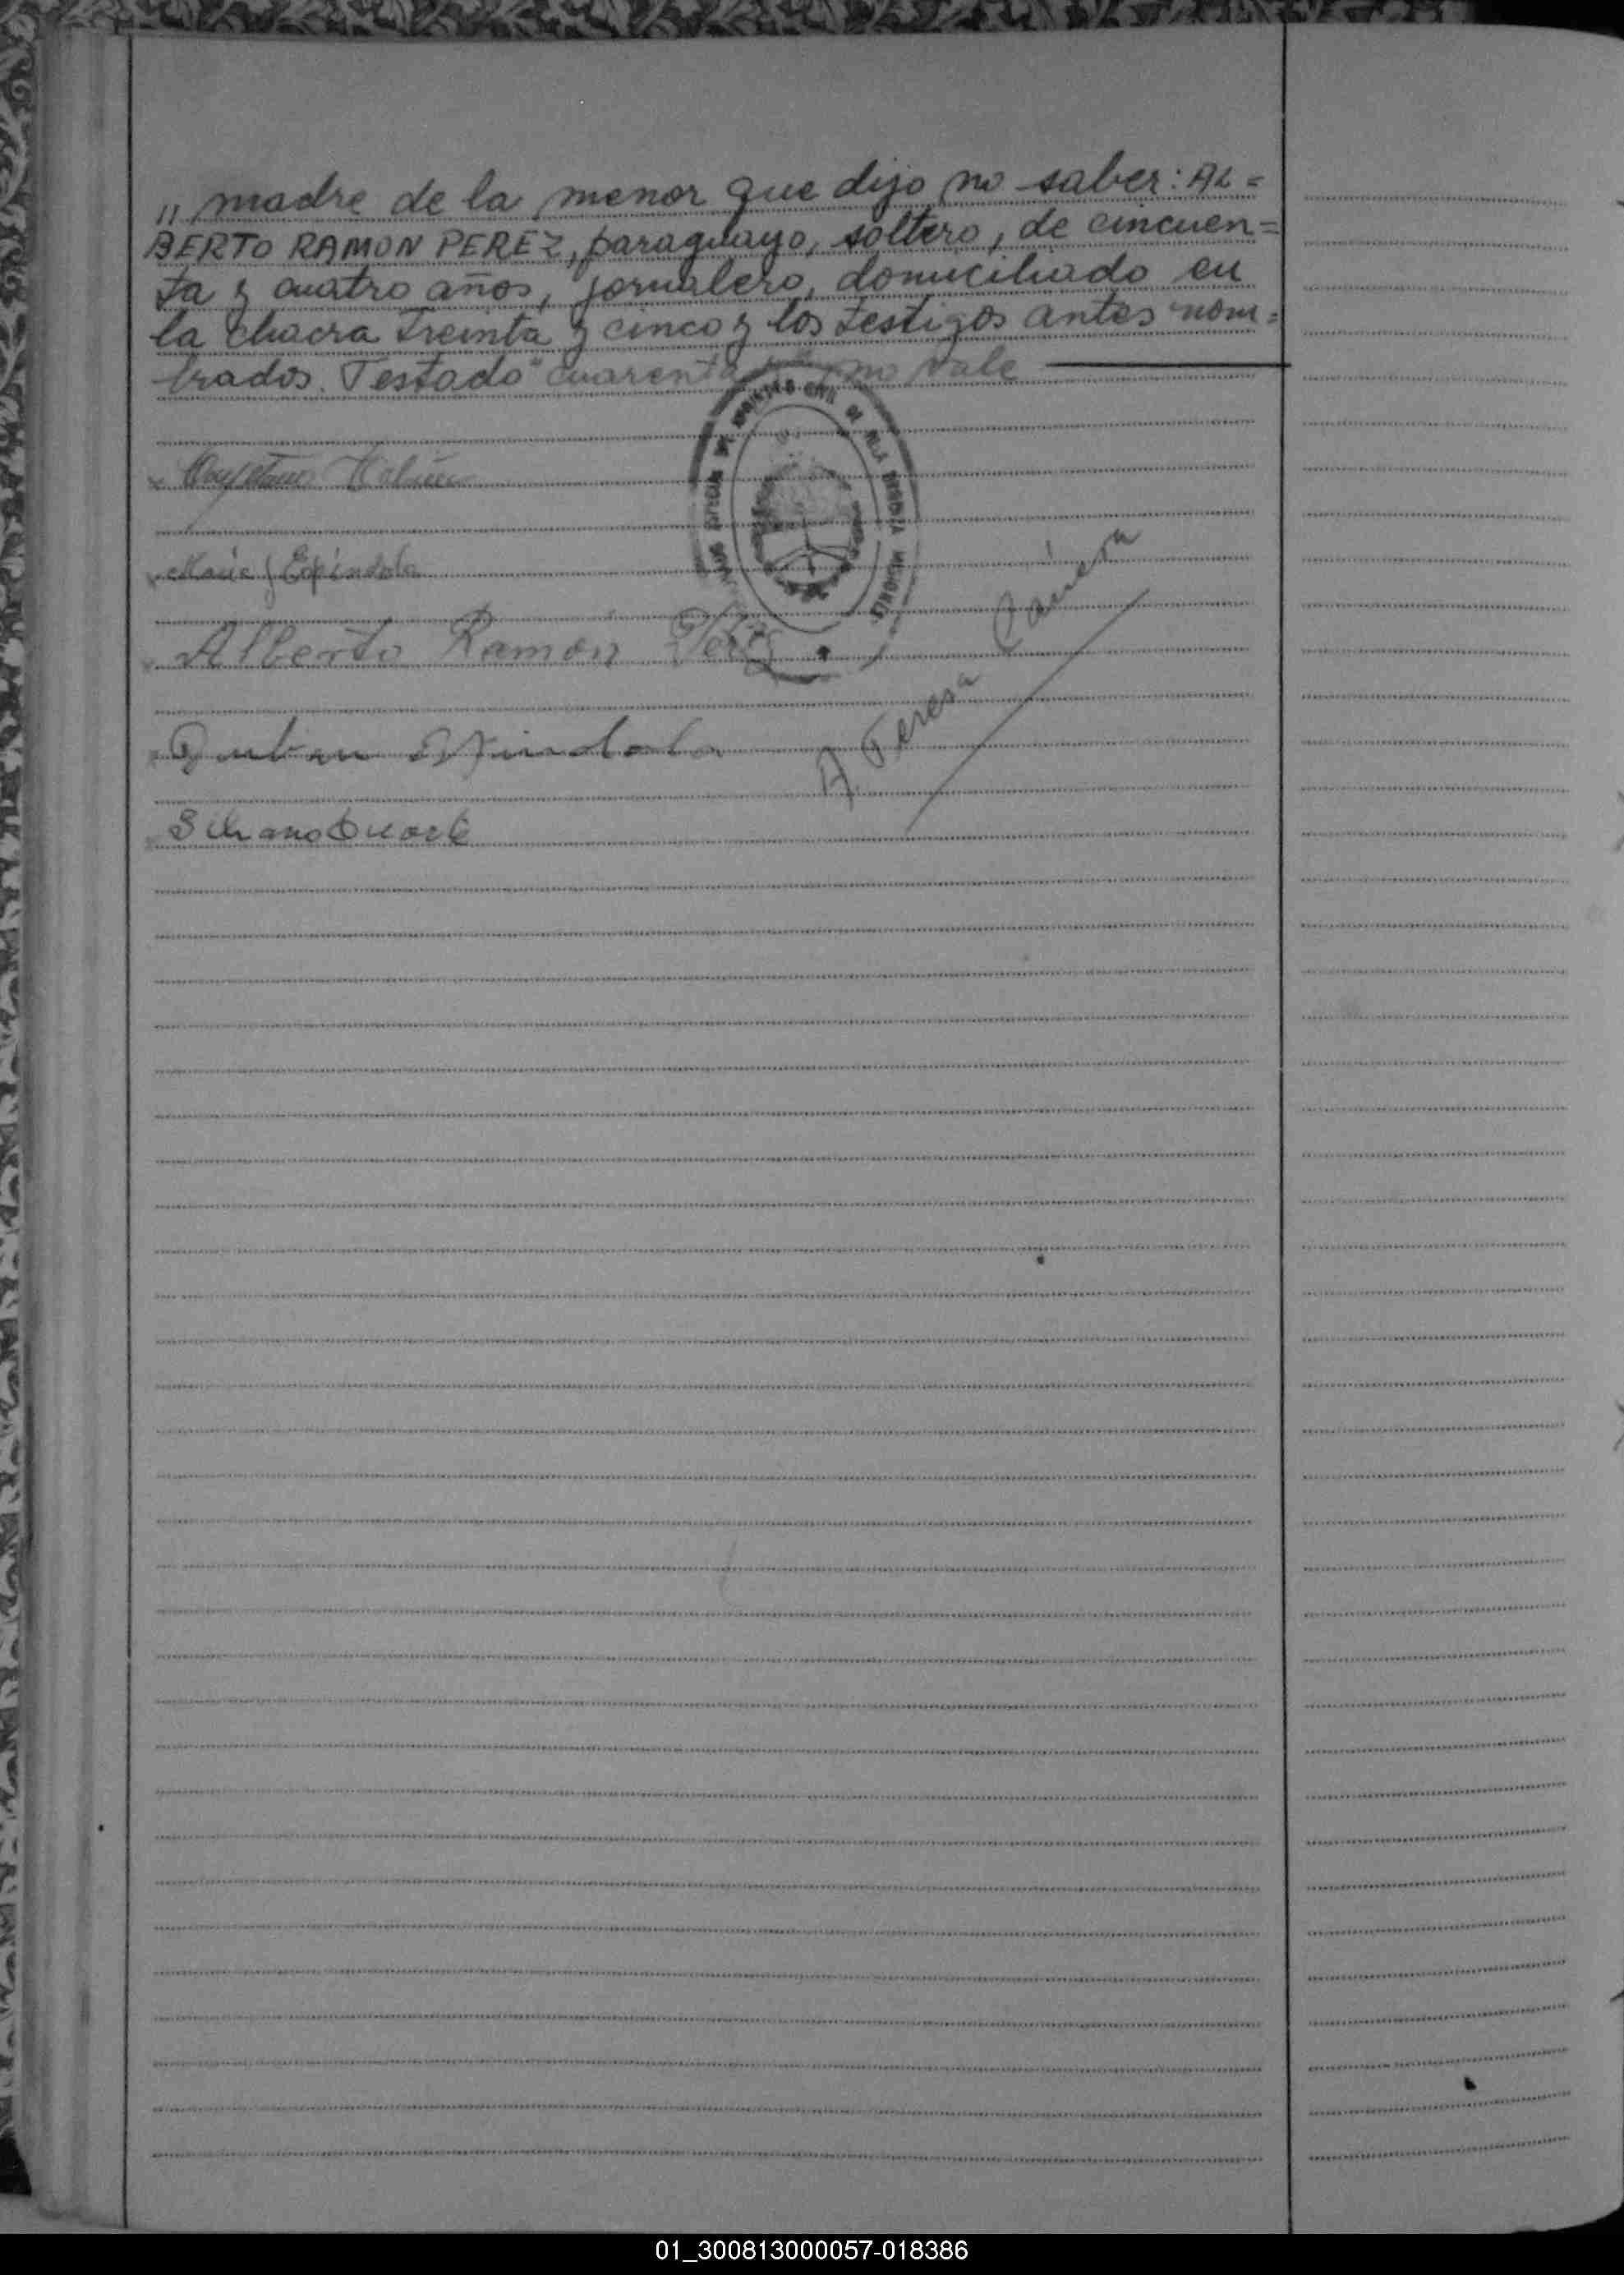 " madre de la menor que dijo no saber: AL=
BERTO RAMON PEREZ, paraguayo, soltero, de cincuen=
ta y cuatro años, jornalero, domiciliado en
la chacra treinta y cinco y los testigos antes nom=
brados. Testado "cuarenta no vale
Maria J Espindola
Alberto Ramon Perez
Ruben Espindola
Silvano Duarte
A. Teresa
01_300813000057-018386